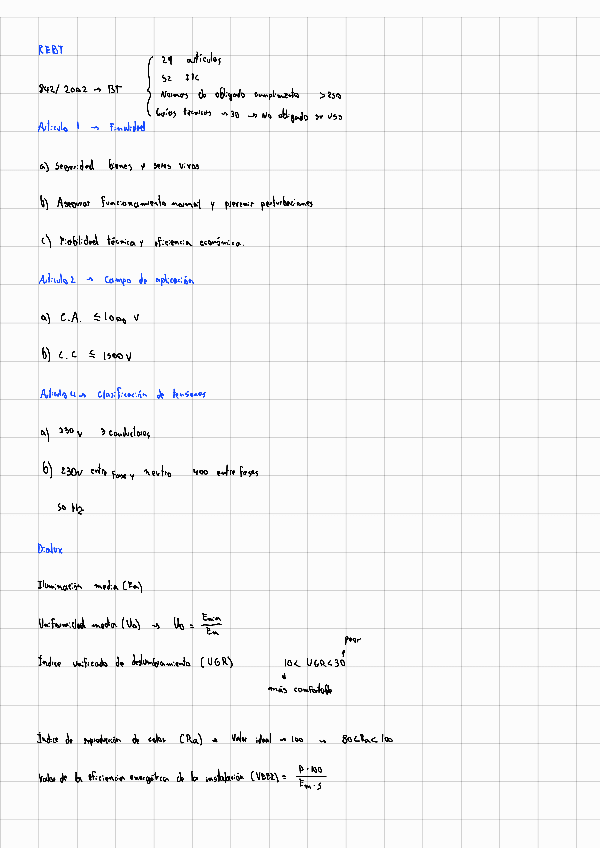 REBT
29 artículos
52 ITC
842/2002 → BT
Normas de obligado cumplimiento > 250
Guías técnicas → 30 → No obligado su uso
Artículo 1 → Finalidad
a) Seguridad bienes y seres vivos
b) Asegurar funcionamiento normal y prevenir perturbaciones
c) Fiabilidad técnica y eficiencia económica.
Artículo 2 → Campo de aplicación
a) C.A. ≤ 1000 V
b) C.C ≤ 1500 V
Artículo 4 → Clasificación de tensiones
a) 230 V 3 conductores
b) 230V entre fase y neutro 400 entre fases
50 Hz
Dialux
Iluminación media (Em)
Uniformidad media (Uo) → Uo = Emin / Em
peor
Índice unificado de deslumbramiento (UGR) 10 < UGR < 30
más confortable
Índice de reproducción de color (Ra) → Valor ideal → 100 → 80 < Ra < 100
Valor de la eficiencia energética de la instalación (VEEI) = P · 100 / Em · S